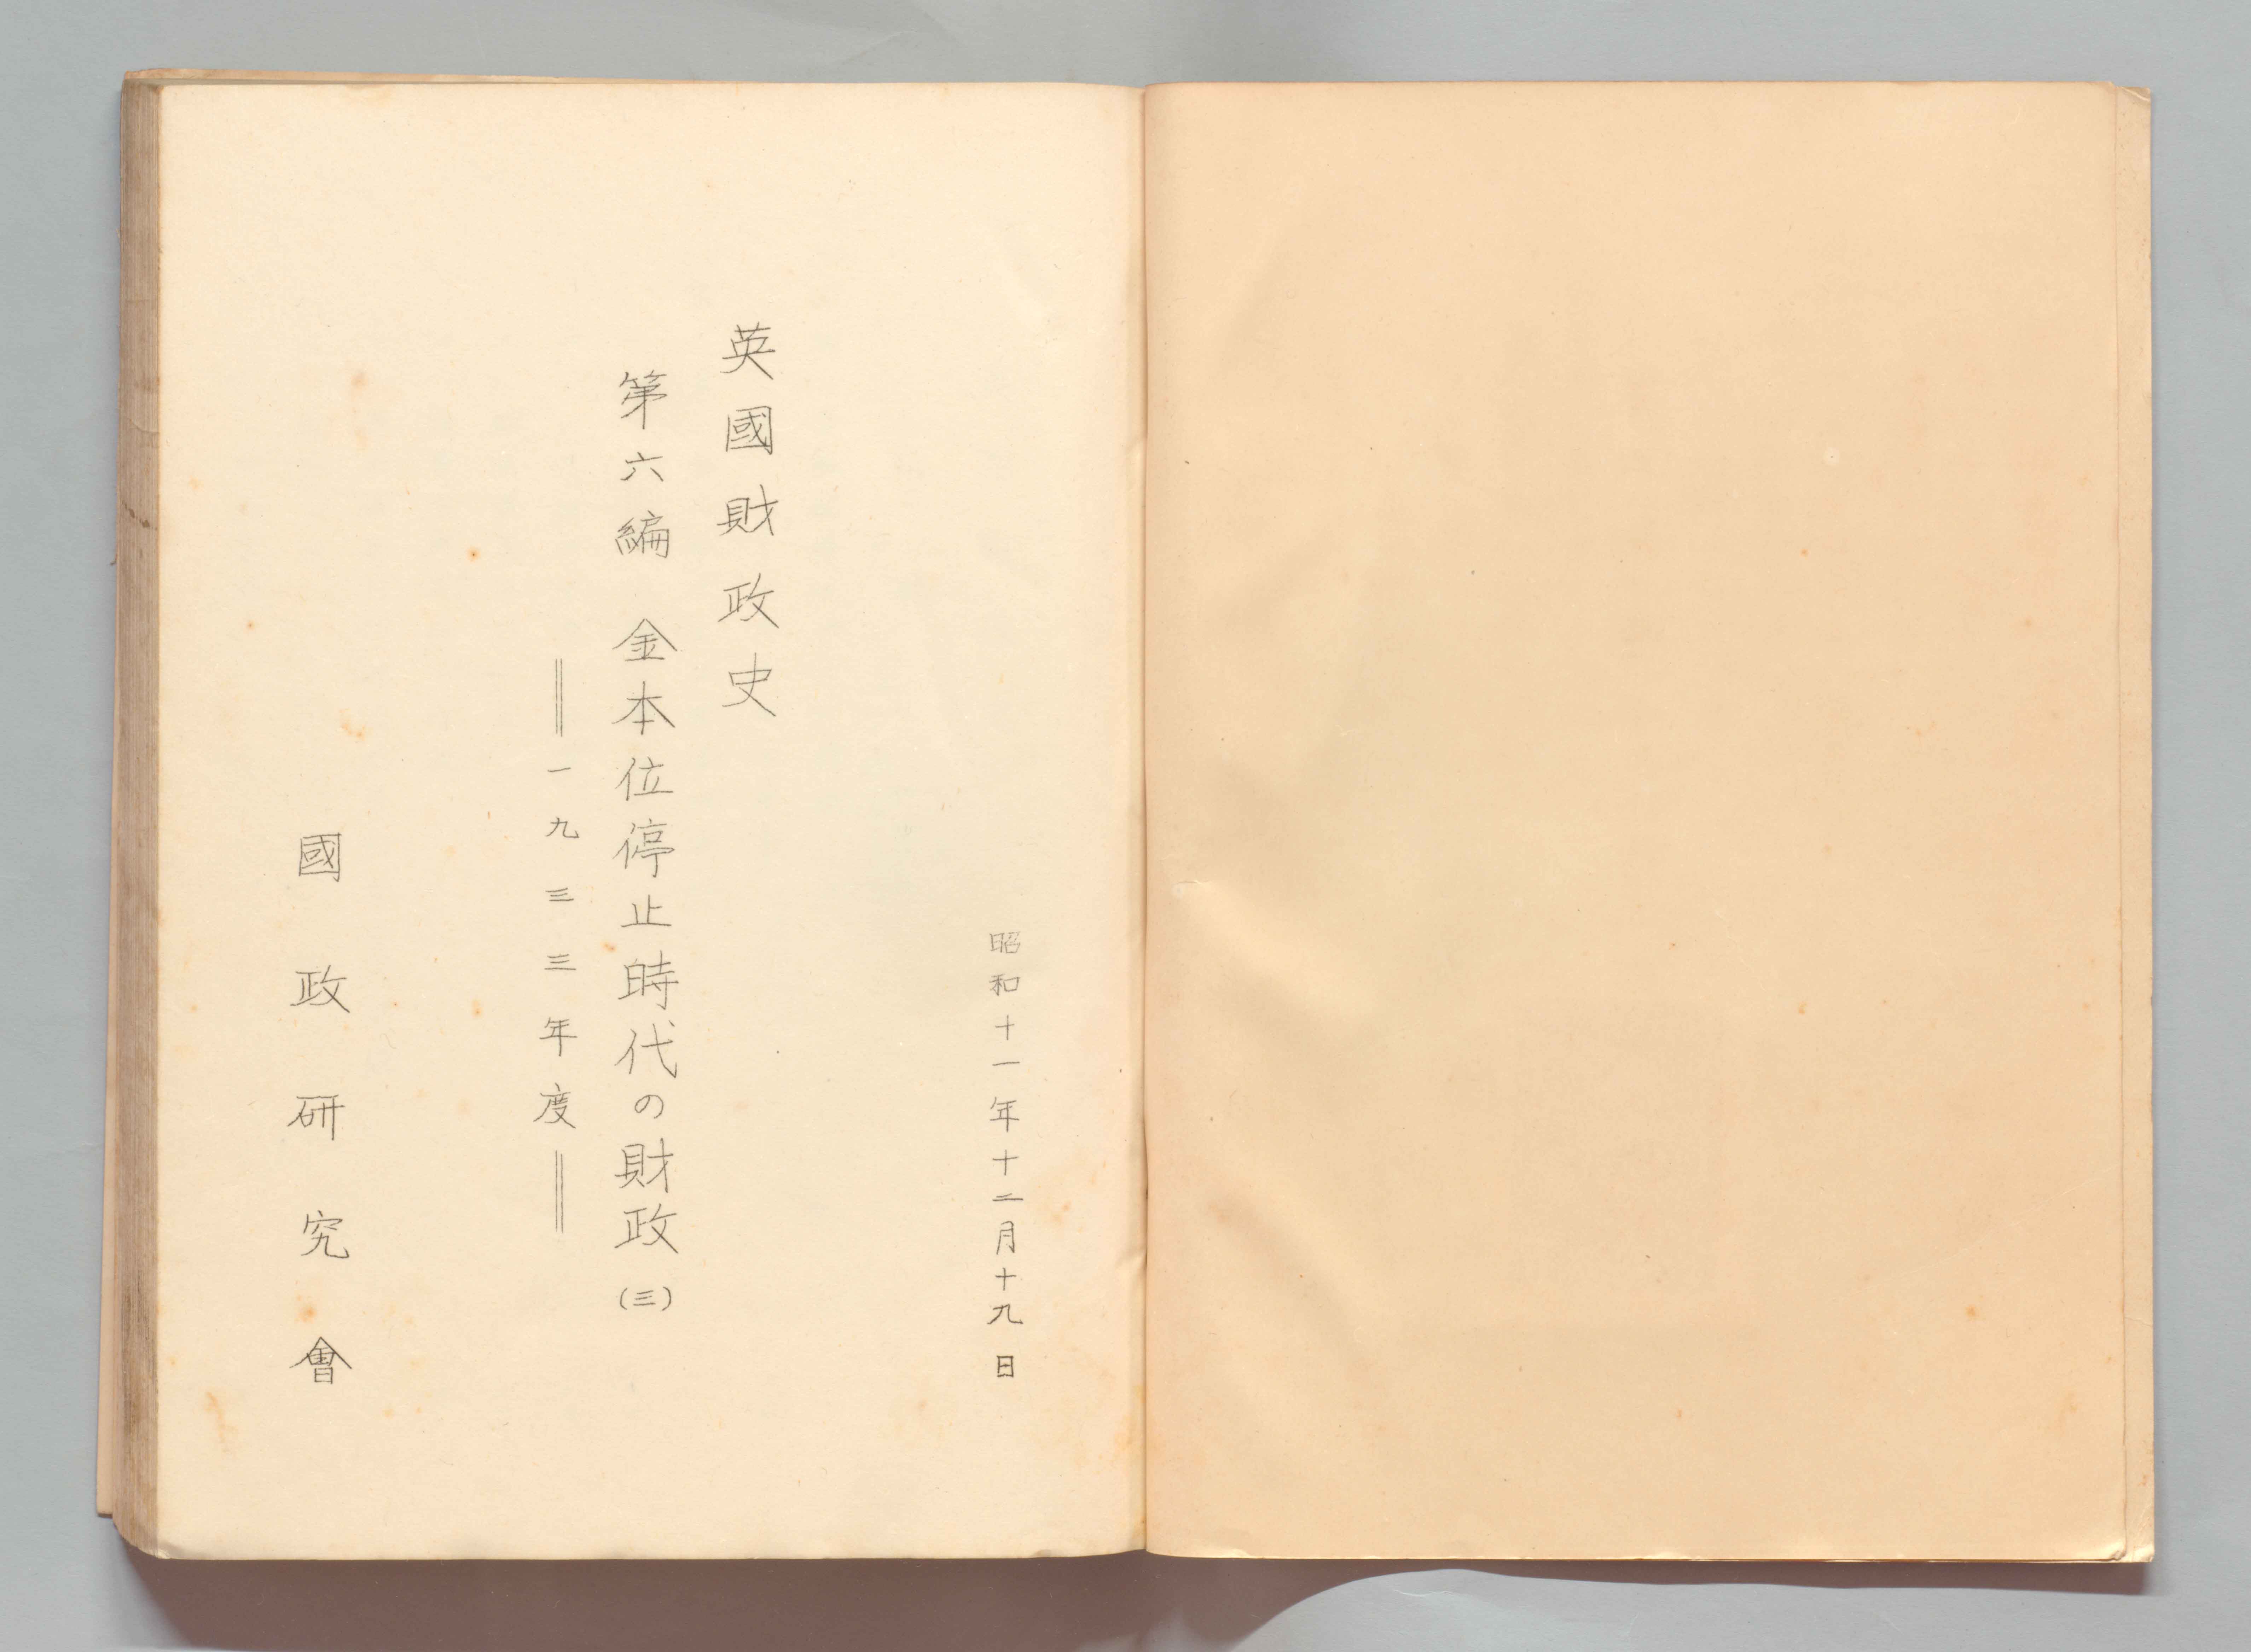 昭和十一年十二月十九日
英國財政史
第六編 金本位停止時代の財政(三)
══一九三三年度══
國政研究會